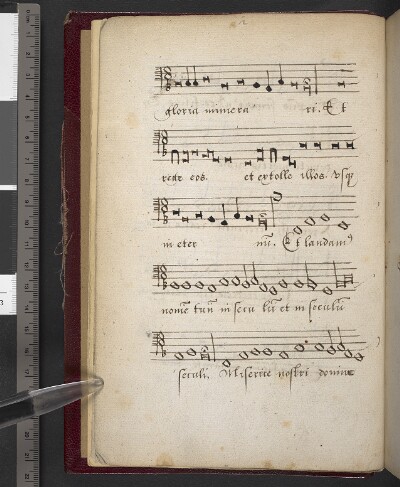 gloria numera ri. Et
rege eos. et extolle illos. usq
in eter nū. Et laudam⁹
nomē tuū in secu lū et in seculū
seculi. Miserere nostri domine